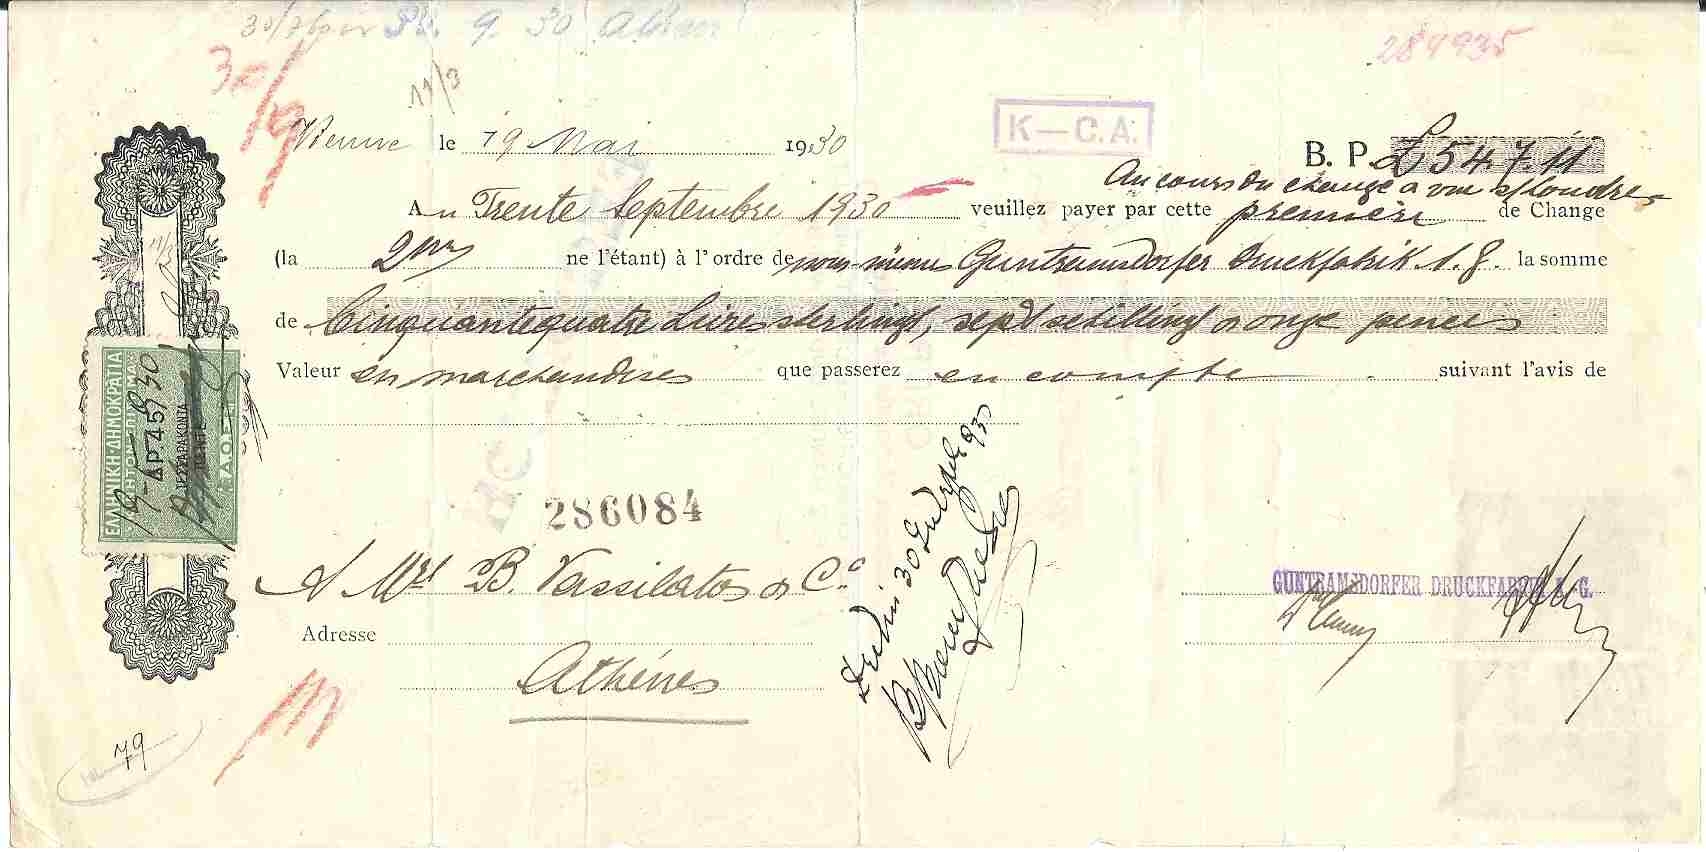 30/9
11/3
289935
K–C.A.
Vienne le 19 Mai 1930 B. P. £ 54.7.11
Au cours du change à vue s/Londres
Au Trente Septembre 1930 veuillez payer par cette première de Change
(la 2me ne l'étant) à l'ordre de nous-mêmes Guntramsdorfer Druckfabrik A.G. la somme
de Cinquantequatre Livres sterlings, sept schillings & onze pences
Valeur en marchandises que passerez en compte suivant l'avis de
ΕΛΛΗΝΙΚΗ·ΔΗΜΟΚΡΑΤΙΑ
ΔΡ. 45
ΤΕΣΣΑΡΑΚΟΝΤΑ
ΠΕΝΤΕ
286084
A Mrs B. Vassilatos & Co
Adresse
Athénes
GUNTRAMSDORFER DRUCKFABRIK A. G.
79